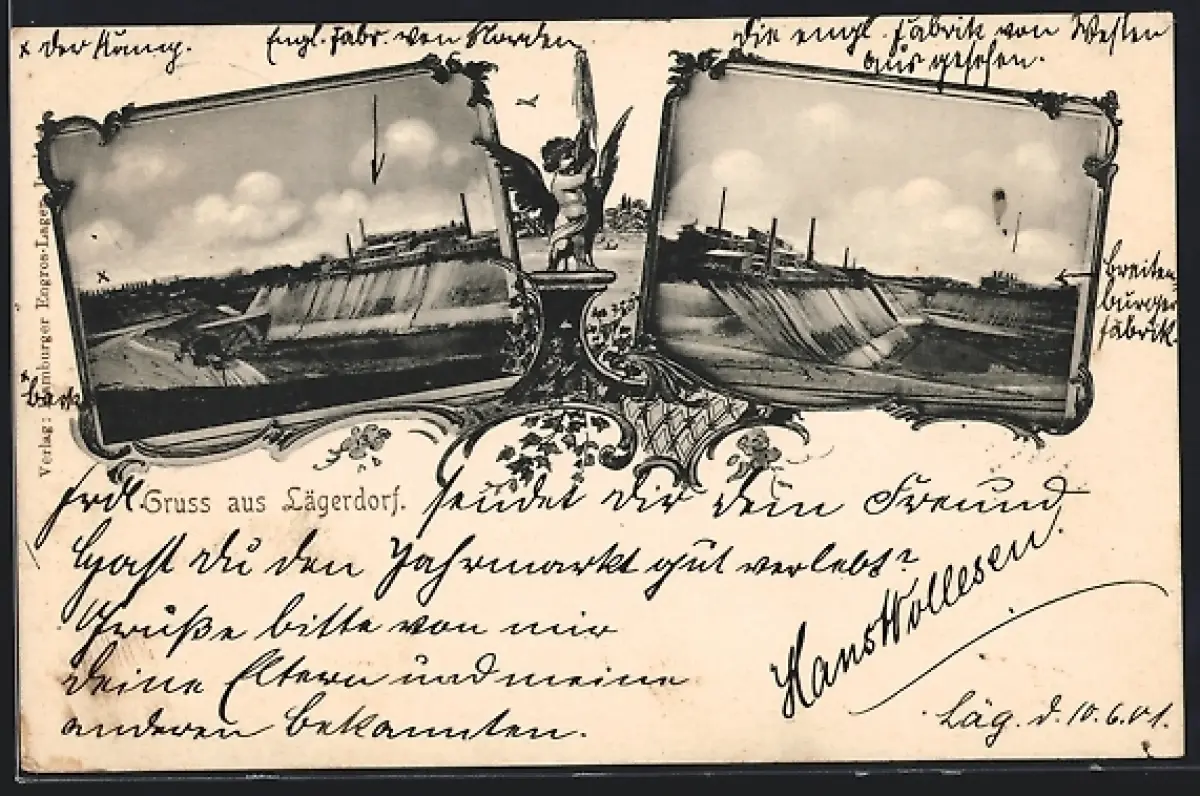 x der Kamp.
Engl. Fabr. von Norden
die engl. Fabrik von Westen
aus gesehen.
Breiten-
burger
Fabrik.
x
Verlag: Hamburger Engros-Lager
Frdl. Gruss aus Lägerdorf. sendet dir dein Freund
Hast du den Jahrmarkt gut verlebt?
Grüße bitte von mir
deine Eltern und meine
anderen Bekannten.
Hans Wollesen.
Läg. d. 10.6.01.